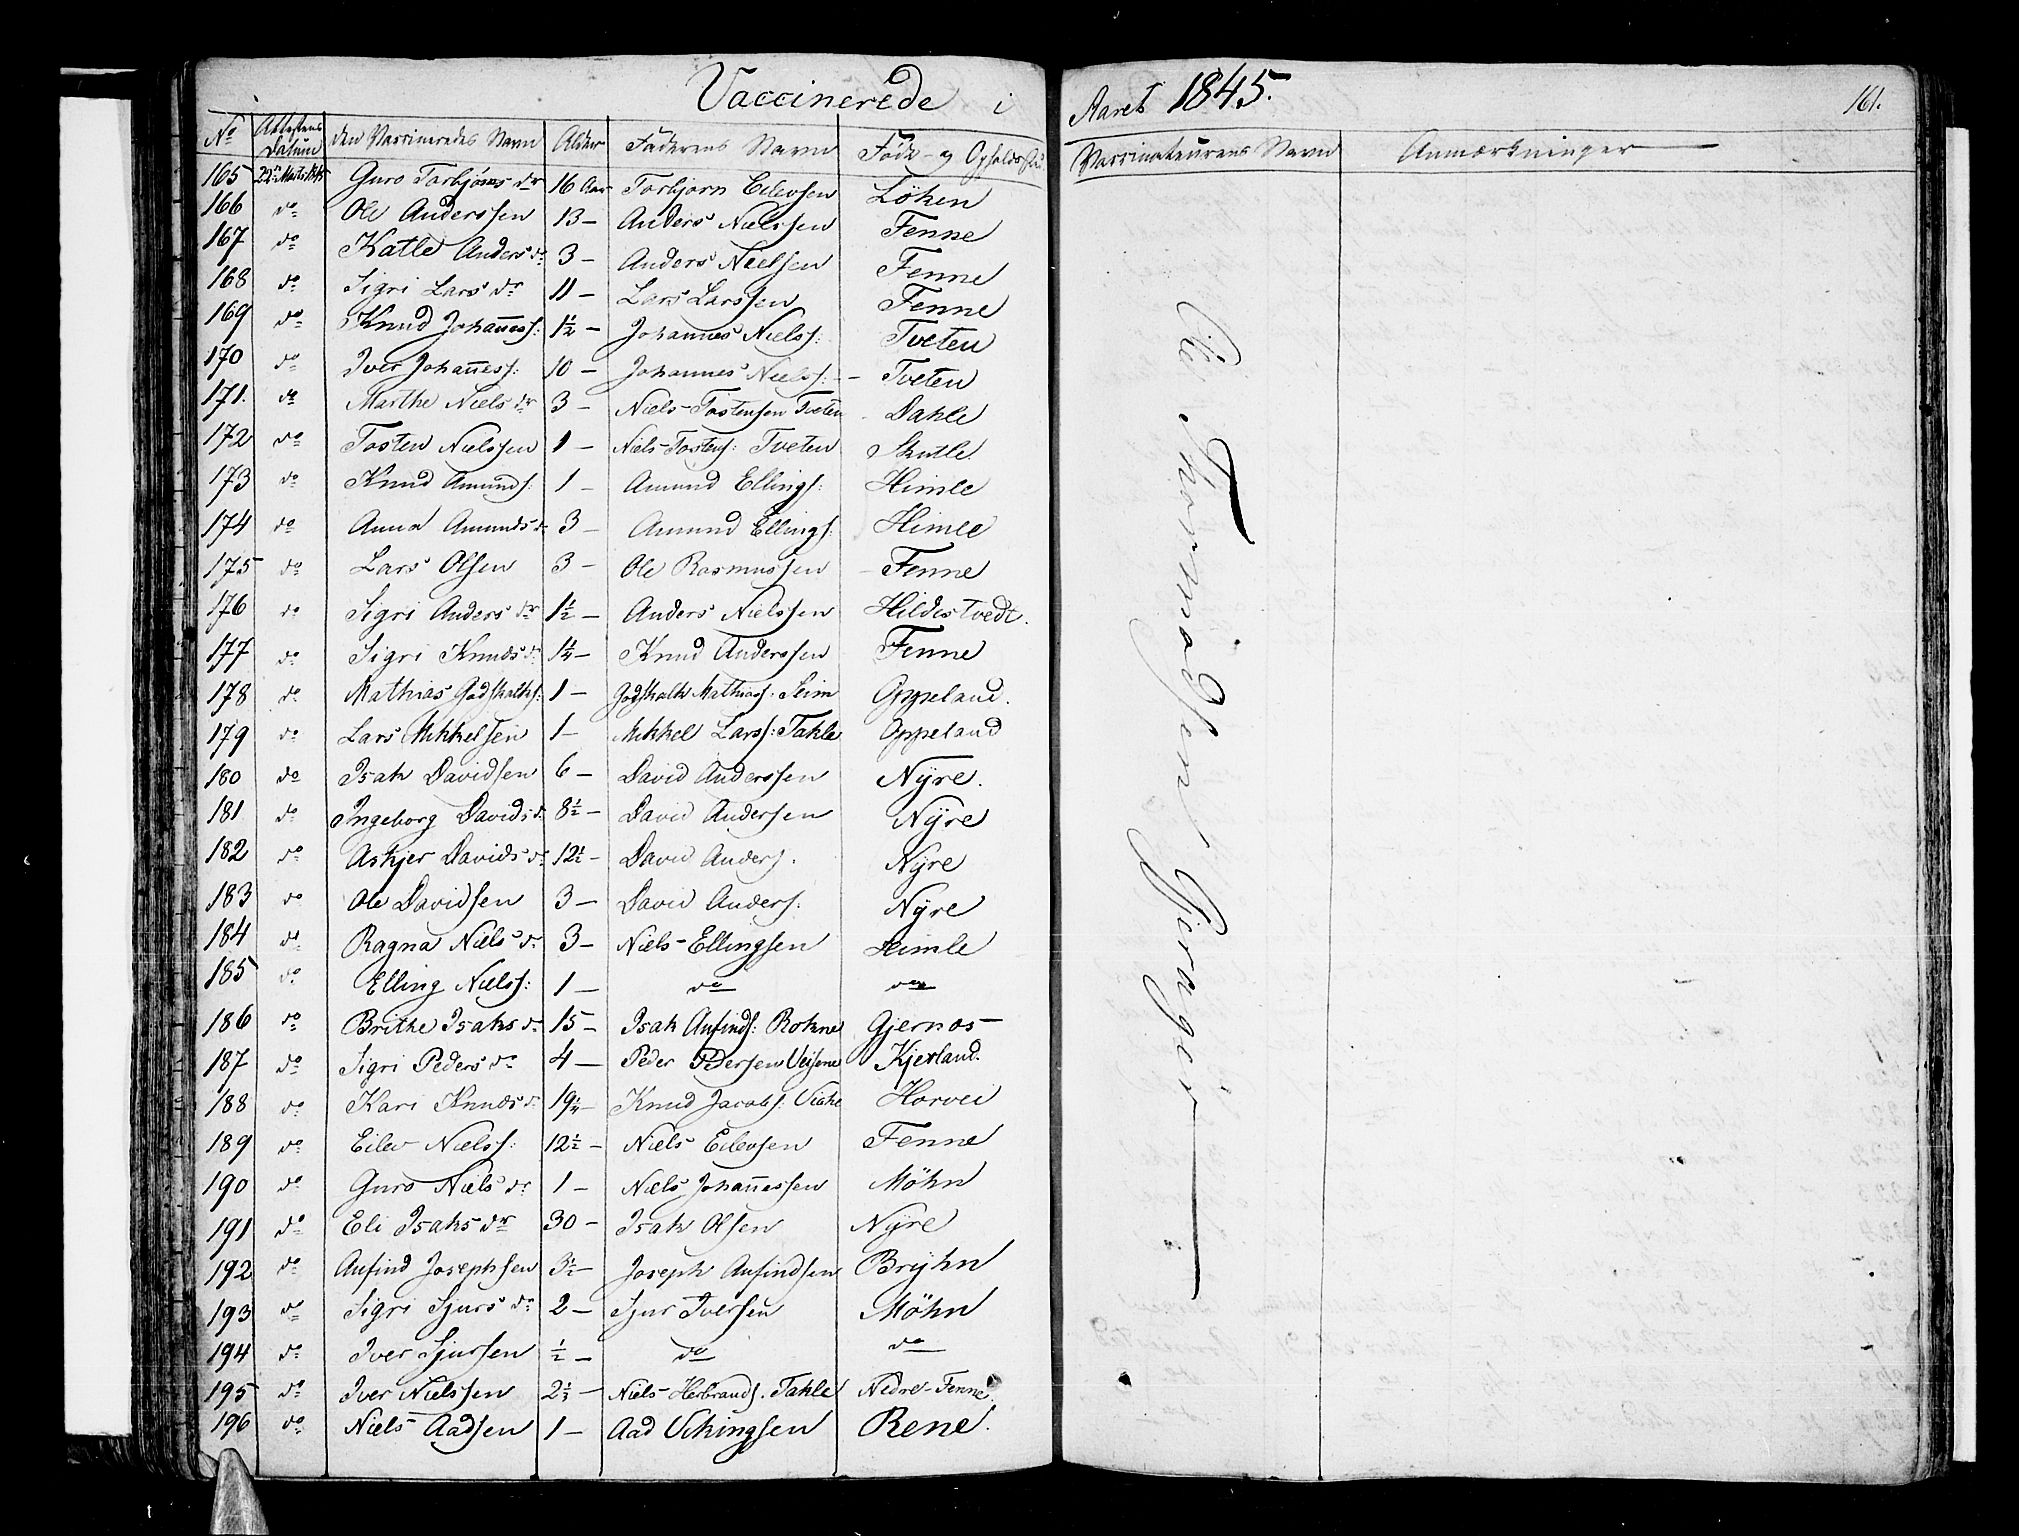 Vaccinerede i Aaret 1845. 161.
No Attestens Datum den Vaccineredes Navn Alder Faderens Navn Føde- og Opholds Vaccinateurens Navn Anmærkninger
165 22de Marts 1845 Guro Torbjöns dr 16 Aar Torbjörn Eilevsen Löken
166 do Ole Anderssen 13 — Anders Nielssen Fenne
167 do Katle Anders dr 3 — Anders Nielsen Fenne
168 do Sigri Lars dr 11 — Lars Larssen Fenne
169 do Knud Johanness: 1½ — Johannes Niels: Tveten
170 do Iver Johanness: 10 — Johannes Niels: — Tveten
171. do Marthe Niels dr 3 — Niels Tostensen Tveten Dahle
172 do Tosten Nielssen 1 — Niels Tostens: Tveten Skutle
173 do Knud Amunds: 1 — Amund Ellings: Himle
174 do Anna Amunds dr 3 — Amund Ellings: Himle
175 do Lars Olsen 3 — Ole Rasmussen — Fenne
176 do Sigri Anders dr 1½ — Anders Nielssen Hildestvedt.
177 do Sigri Knuds dr 1¼ — Knud Anderssen Fenne
178 do Mathias Godskalks: 1 — Godskalk Mathias: Seim Oppeland.
179 do Lars Mikkelsen 1 — Mikkel Lars: Takle Oppeland
180 do Isak Davidsen 6 — David Anderssen Nÿre.
181 do Ingeborg Davids dr 8½ — David Andersen Nÿre
182 do Askjer Davids dr 12½ — David Anders: Nÿre
183 do Ole Davidsen 3 — David Anders: Nÿre
184 do Ragna Niels dr 3 — Niels Ellingsen Himle
185 do Elling Niels: 1 — do do
186 do Brithe Isaks dr 15 — Isak Anfinds: Rokne Gjernæs
187 do Sigri Peders dr 4 — Peder Pedersen Kjerland.
188 do Kari Knuds dr 19¼ — Knud Jacobs: Horvei
189 do Eilev Niels: 12½ — Niels Eilevsen Fenne
190 do Guro Niels dr 1 — Niels Johannessen Möhn
191 do Eli Isaks dr 30 — Isak Olsen Nÿre
192 do Anfind Josephsen 3½ — Joseph Anfindsen Brÿhn
193 do Sigri Sjurs dr 2 — Sjur Iversen Möhn
194 do Iver Sjursen ½ — do do
195 do Iver Nielssen 2½ — Niels Herbrands. Takle Nedre-Fenne.
196 do Niels Aadsen 1 — Aad Vikingsen Rene.
Ole Thormodsen Gjerager